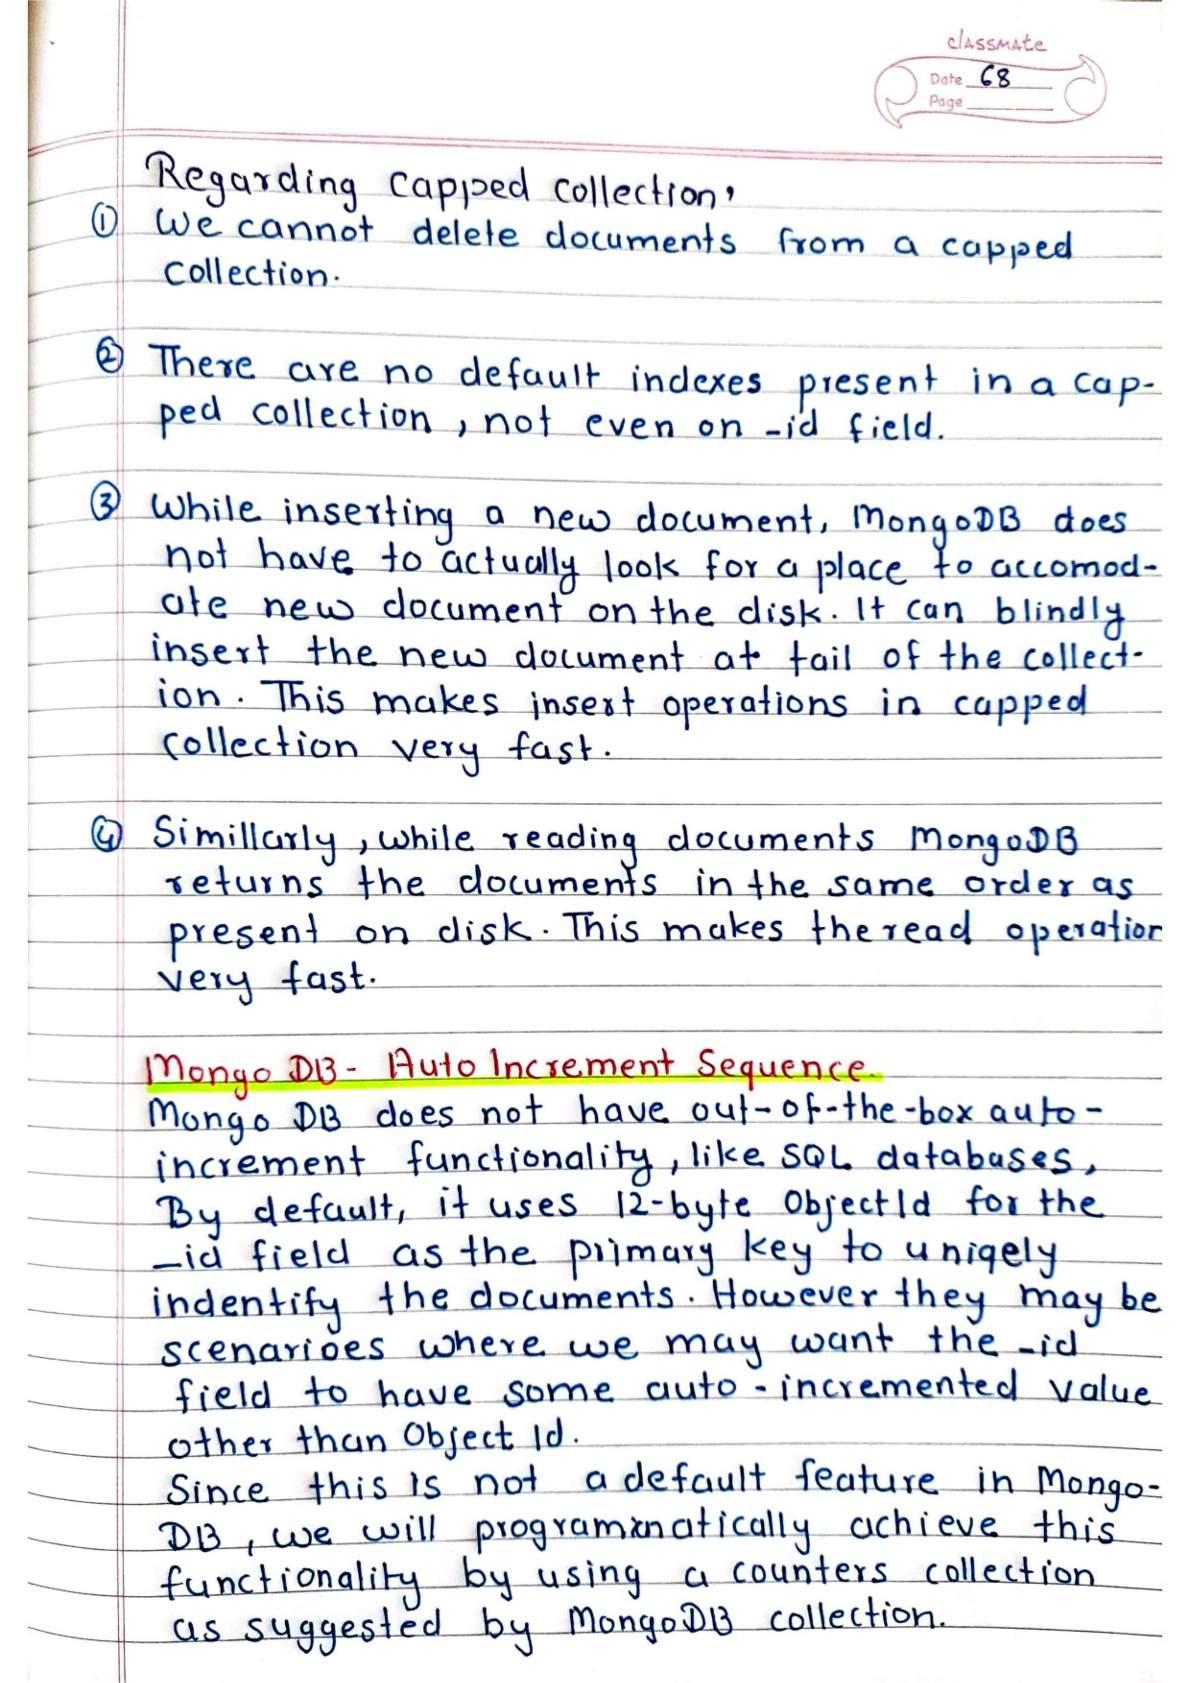 classmate
Date 68
Page
Regarding capped collection,
① We cannot delete documents from a capped
collection.
② There are no default indexes present in a cap-
ped collection, not even on _id field.
③ While inserting a new document, MongoDB does
not have to actually look for a place to accomod-
ate new document on the disk. It can blindly
insert the new document at tail of the collect-
ion. This makes insert operations in capped
collection very fast.
④ Simillarly, while reading documents MongoDB
returns the documents in the same order as
present on disk. This makes the read operation
very fast.
Mongo DB - Auto Increment Sequence.
Mongo DB does not have out-of-the-box auto-
increment functionality, like SQL databases,
By default, it uses 12-byte ObjectId for the
_id field as the primary key to uniqely
indentify the documents. However they may be
scenarioes where we may want the _id
field to have some auto-incremented value
other than Object Id.
Since this is not a default feature in Mongo-
DB, we will programmatically achieve this
functionality by using a counters collection
as suggested by MongoDB collection.